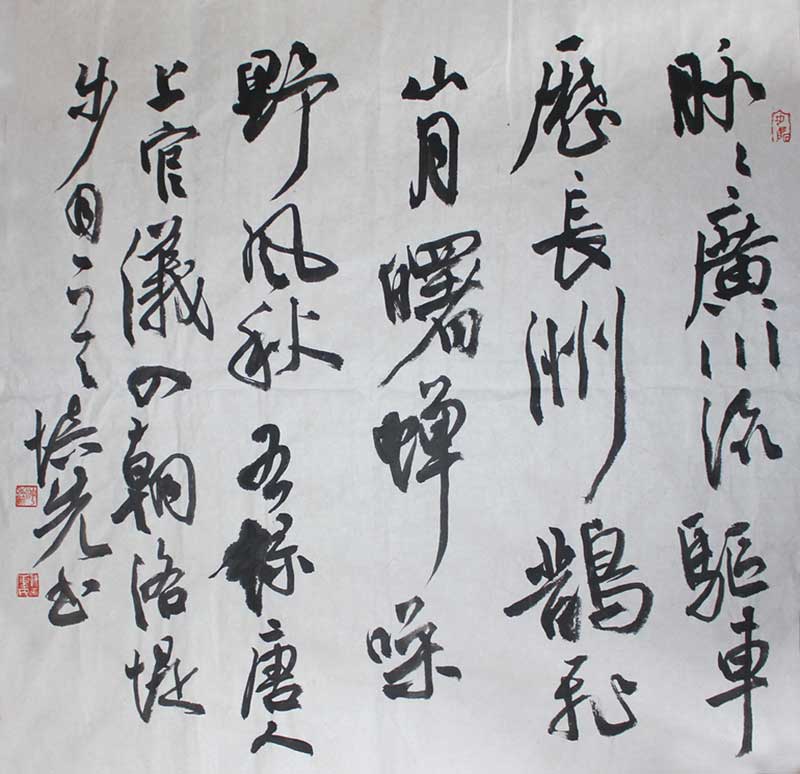 脉〻廣川流驅車
歷長洲鵲飛
山月曙蝉噪
野風秋右錄唐人
上官儀入朝洛堤
步月一首培先书